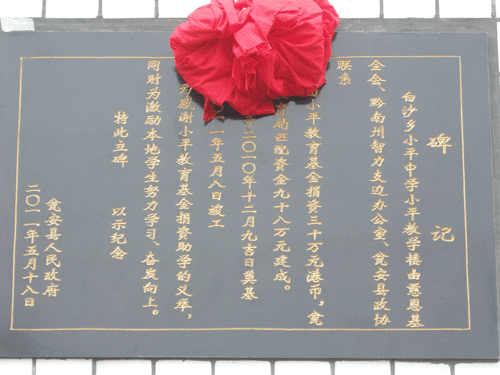 碑记
白沙乡小平中学小平教学楼由慈恩基
金会、黔南州智力支边办公室、瓮安县政协
联系
小平教育基金捐资三十万元港币，瓮
局匹配资金九十八万元建成。
二0一0年十二月九吉日奠基
一年五月八日竣工
为感谢小平教育基金捐资助学的义举，
同时为激励本地学生努力学习、奋发向上。
特此立碑 以示纪念
瓮安县人民政府
二0一一年五月十八日